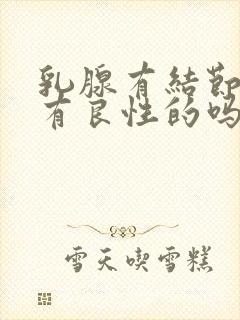 乳腺有結節
有良性的吗
雪天喫雪糕